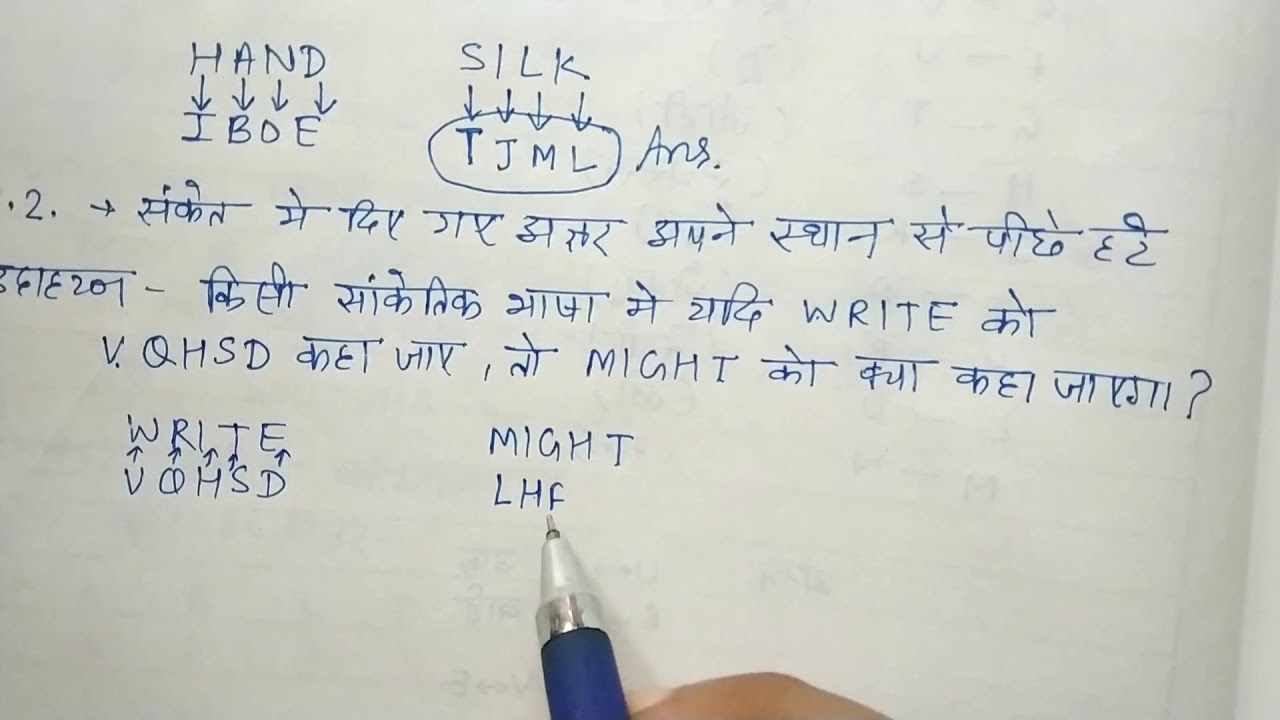 HAND SILK
IBOE TJML Ans.
.2. → संकेत मे दिए गए अक्षर अपने स्थान से पीछे हटे
उदाहरण - किसी सांकेतिक भाषा मे यदि WRITE को
V. QHSD कहा जाए, तो MIGHT को क्या कहा जाएगा?
WRITE MIGHT
VQHSD LHF